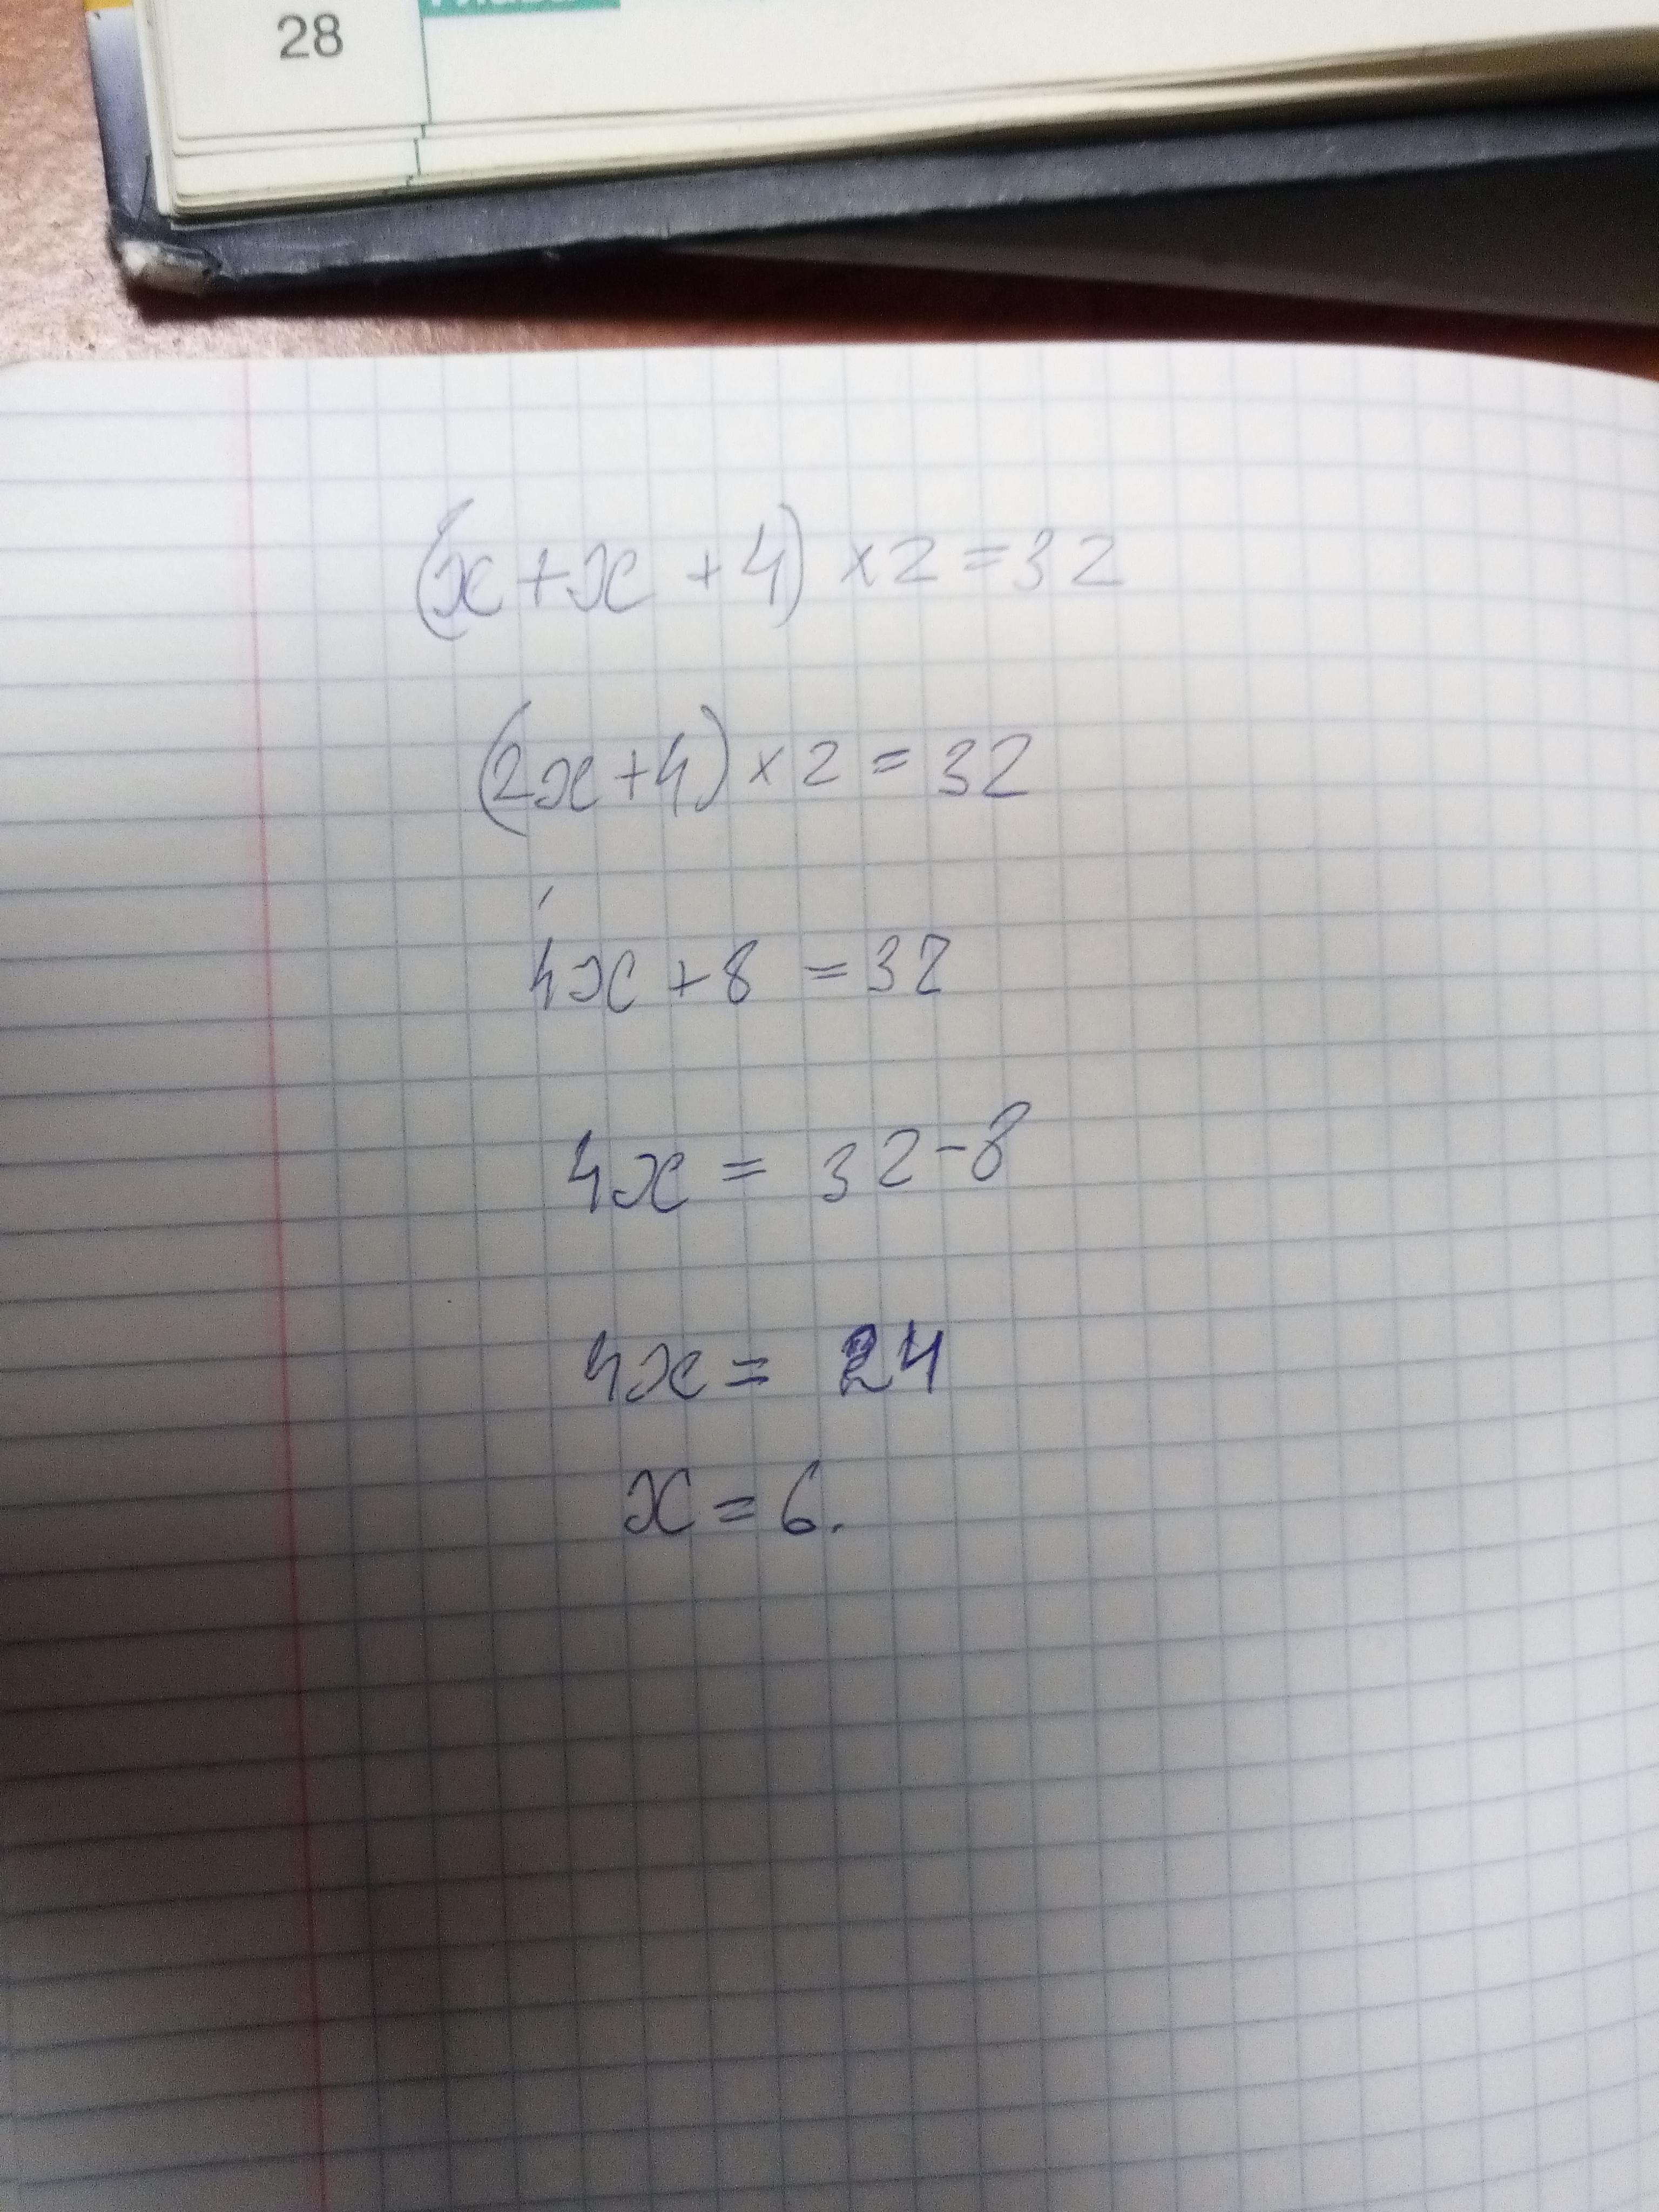 28
(x+x+4)×2=32
(2x+4)×2=32
4x+8=32
4x=32-8
4x=24
x=6.